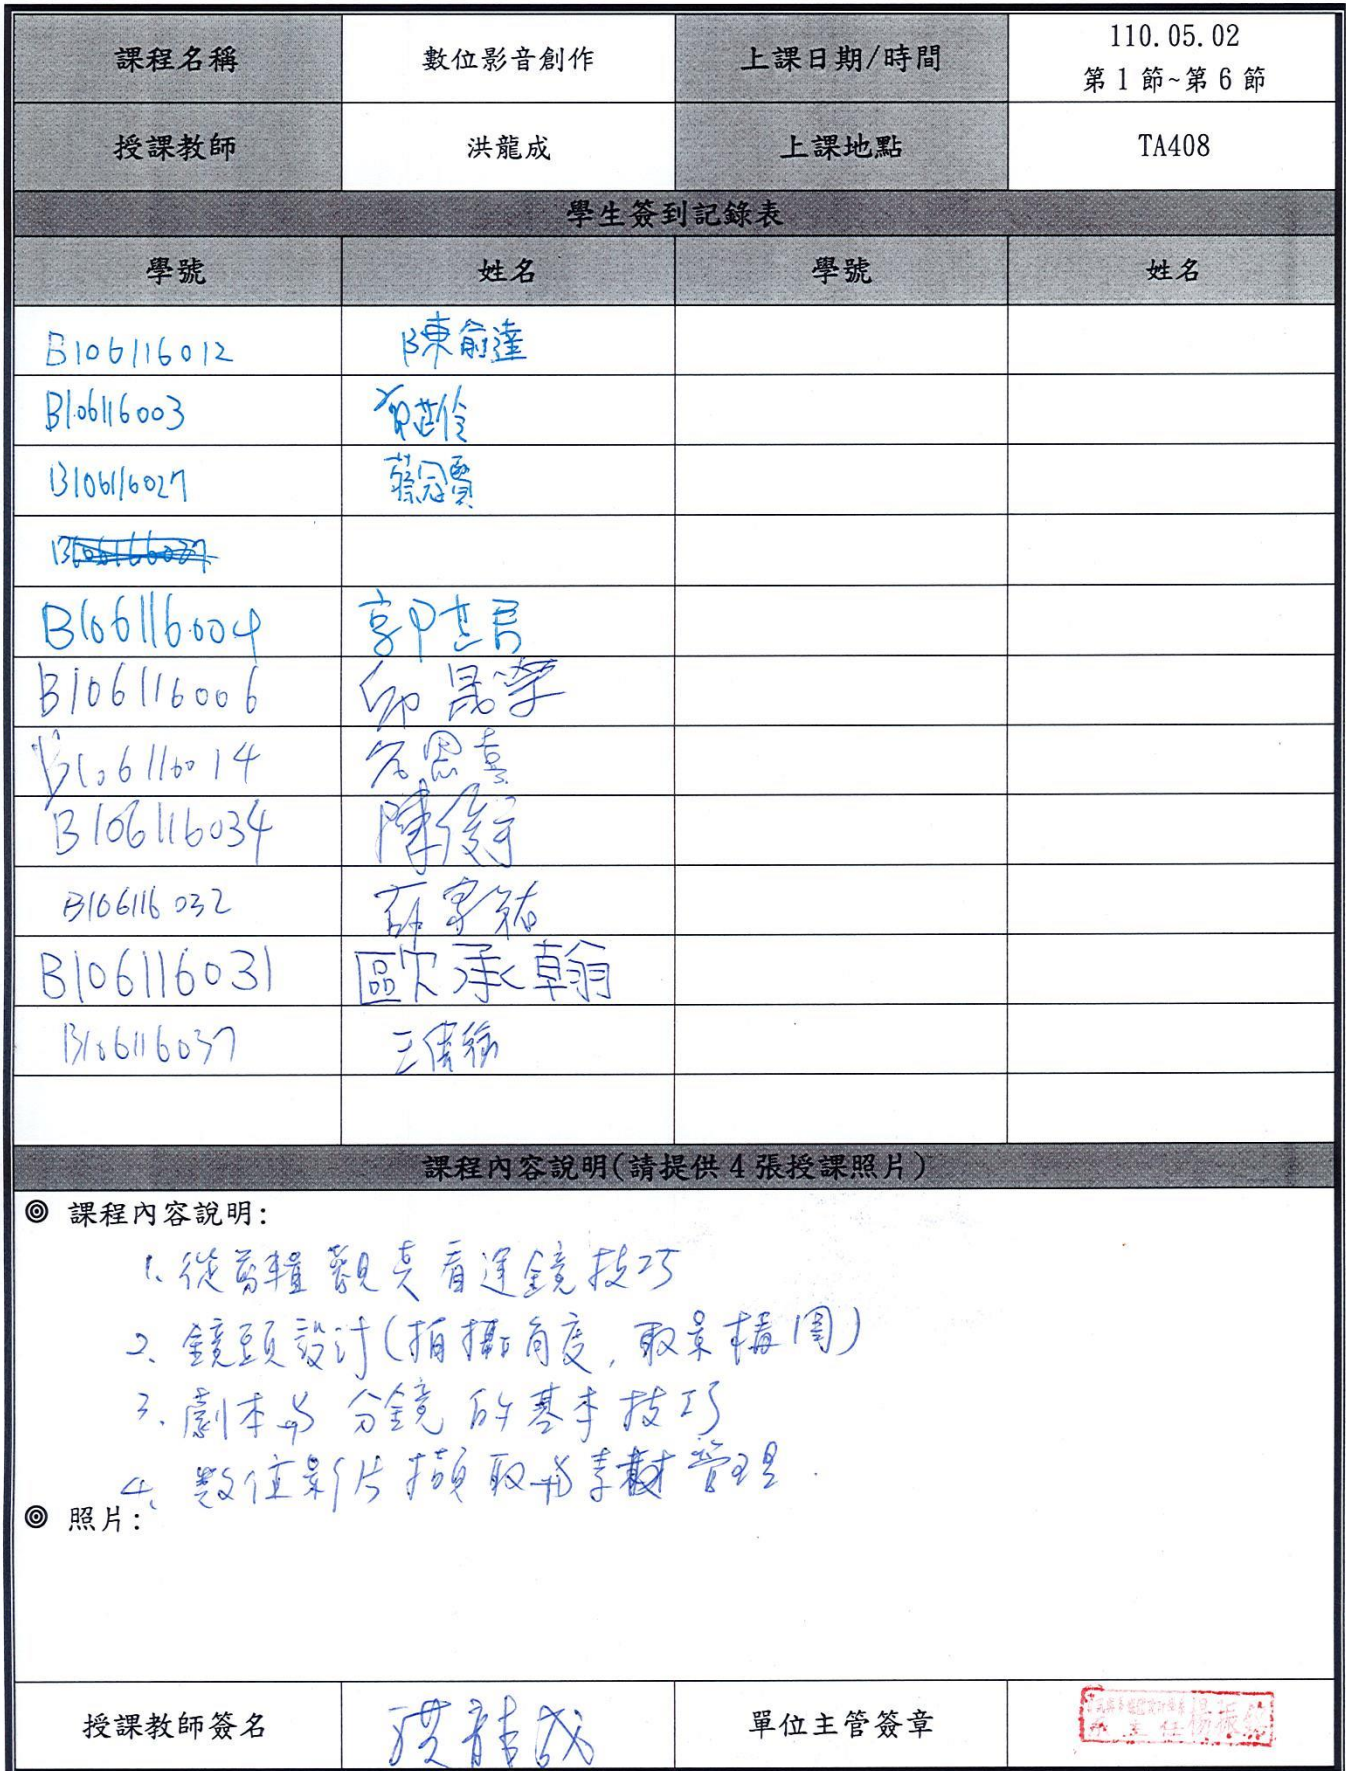 課程名稱 數位影音創作 上課日期/時間 110.05.02
第 1 節~第 6 節
授課教師 洪龍成 上課地點 TA408
學生簽到記錄表
學號 姓名 學號 姓名
B106116012 陳俞達
B106116003
B106116027 蔡冠賢
B106116004 郭芷君
B106116006
B106116014
B106116034 陳俊宇
B106116032 薛宇祐
B106116031 歐承翰
B106116037
課程內容說明(請提供 4 張授課照片)
◎ 課程內容說明:
1. 從剪輯觀點看運鏡技巧
2. 鏡頭設計(拍攝角度, 取景構圖)
3. 劇本與分鏡的基本技巧
4. 數位影片擷取與素材管理.
◎ 照片:
授課教師簽名 洪龍成 單位主管簽章 主任 楊振